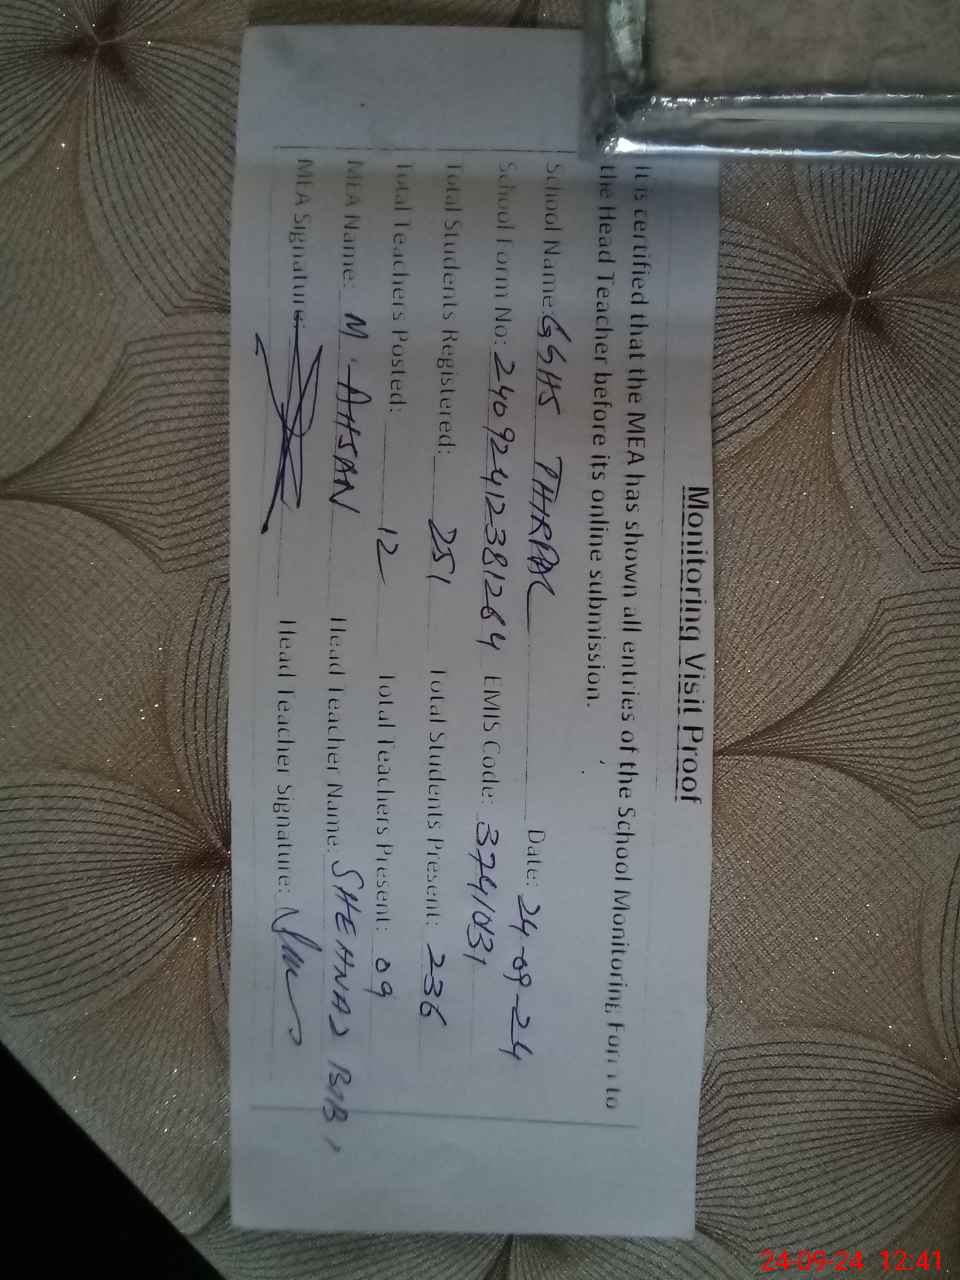 Monitoring Visit Proof
It is certified that the MEA has shown all entries of the School Monitoring Form to
the Head Teacher before its online submission.
School Name: GGHS THRPAL Date: 24-09-24
School Form No: 24092412381264 EMIS Code: 3741031
Total Students Registered: 251 Total Students Present: 236
Total Teachers Posted: 12 Total Teachers Present: 09
MEA Name: M. AHSAN Head Teacher Name: SHEHNAZ BIBI
MEA Signature: Head Teacher Signature:
24-09-24 12:41